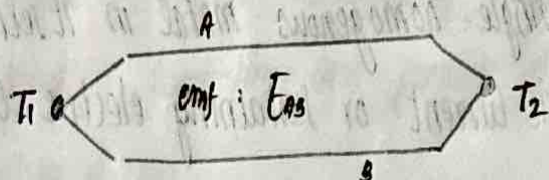 A
T1 emf : EAB T2
B